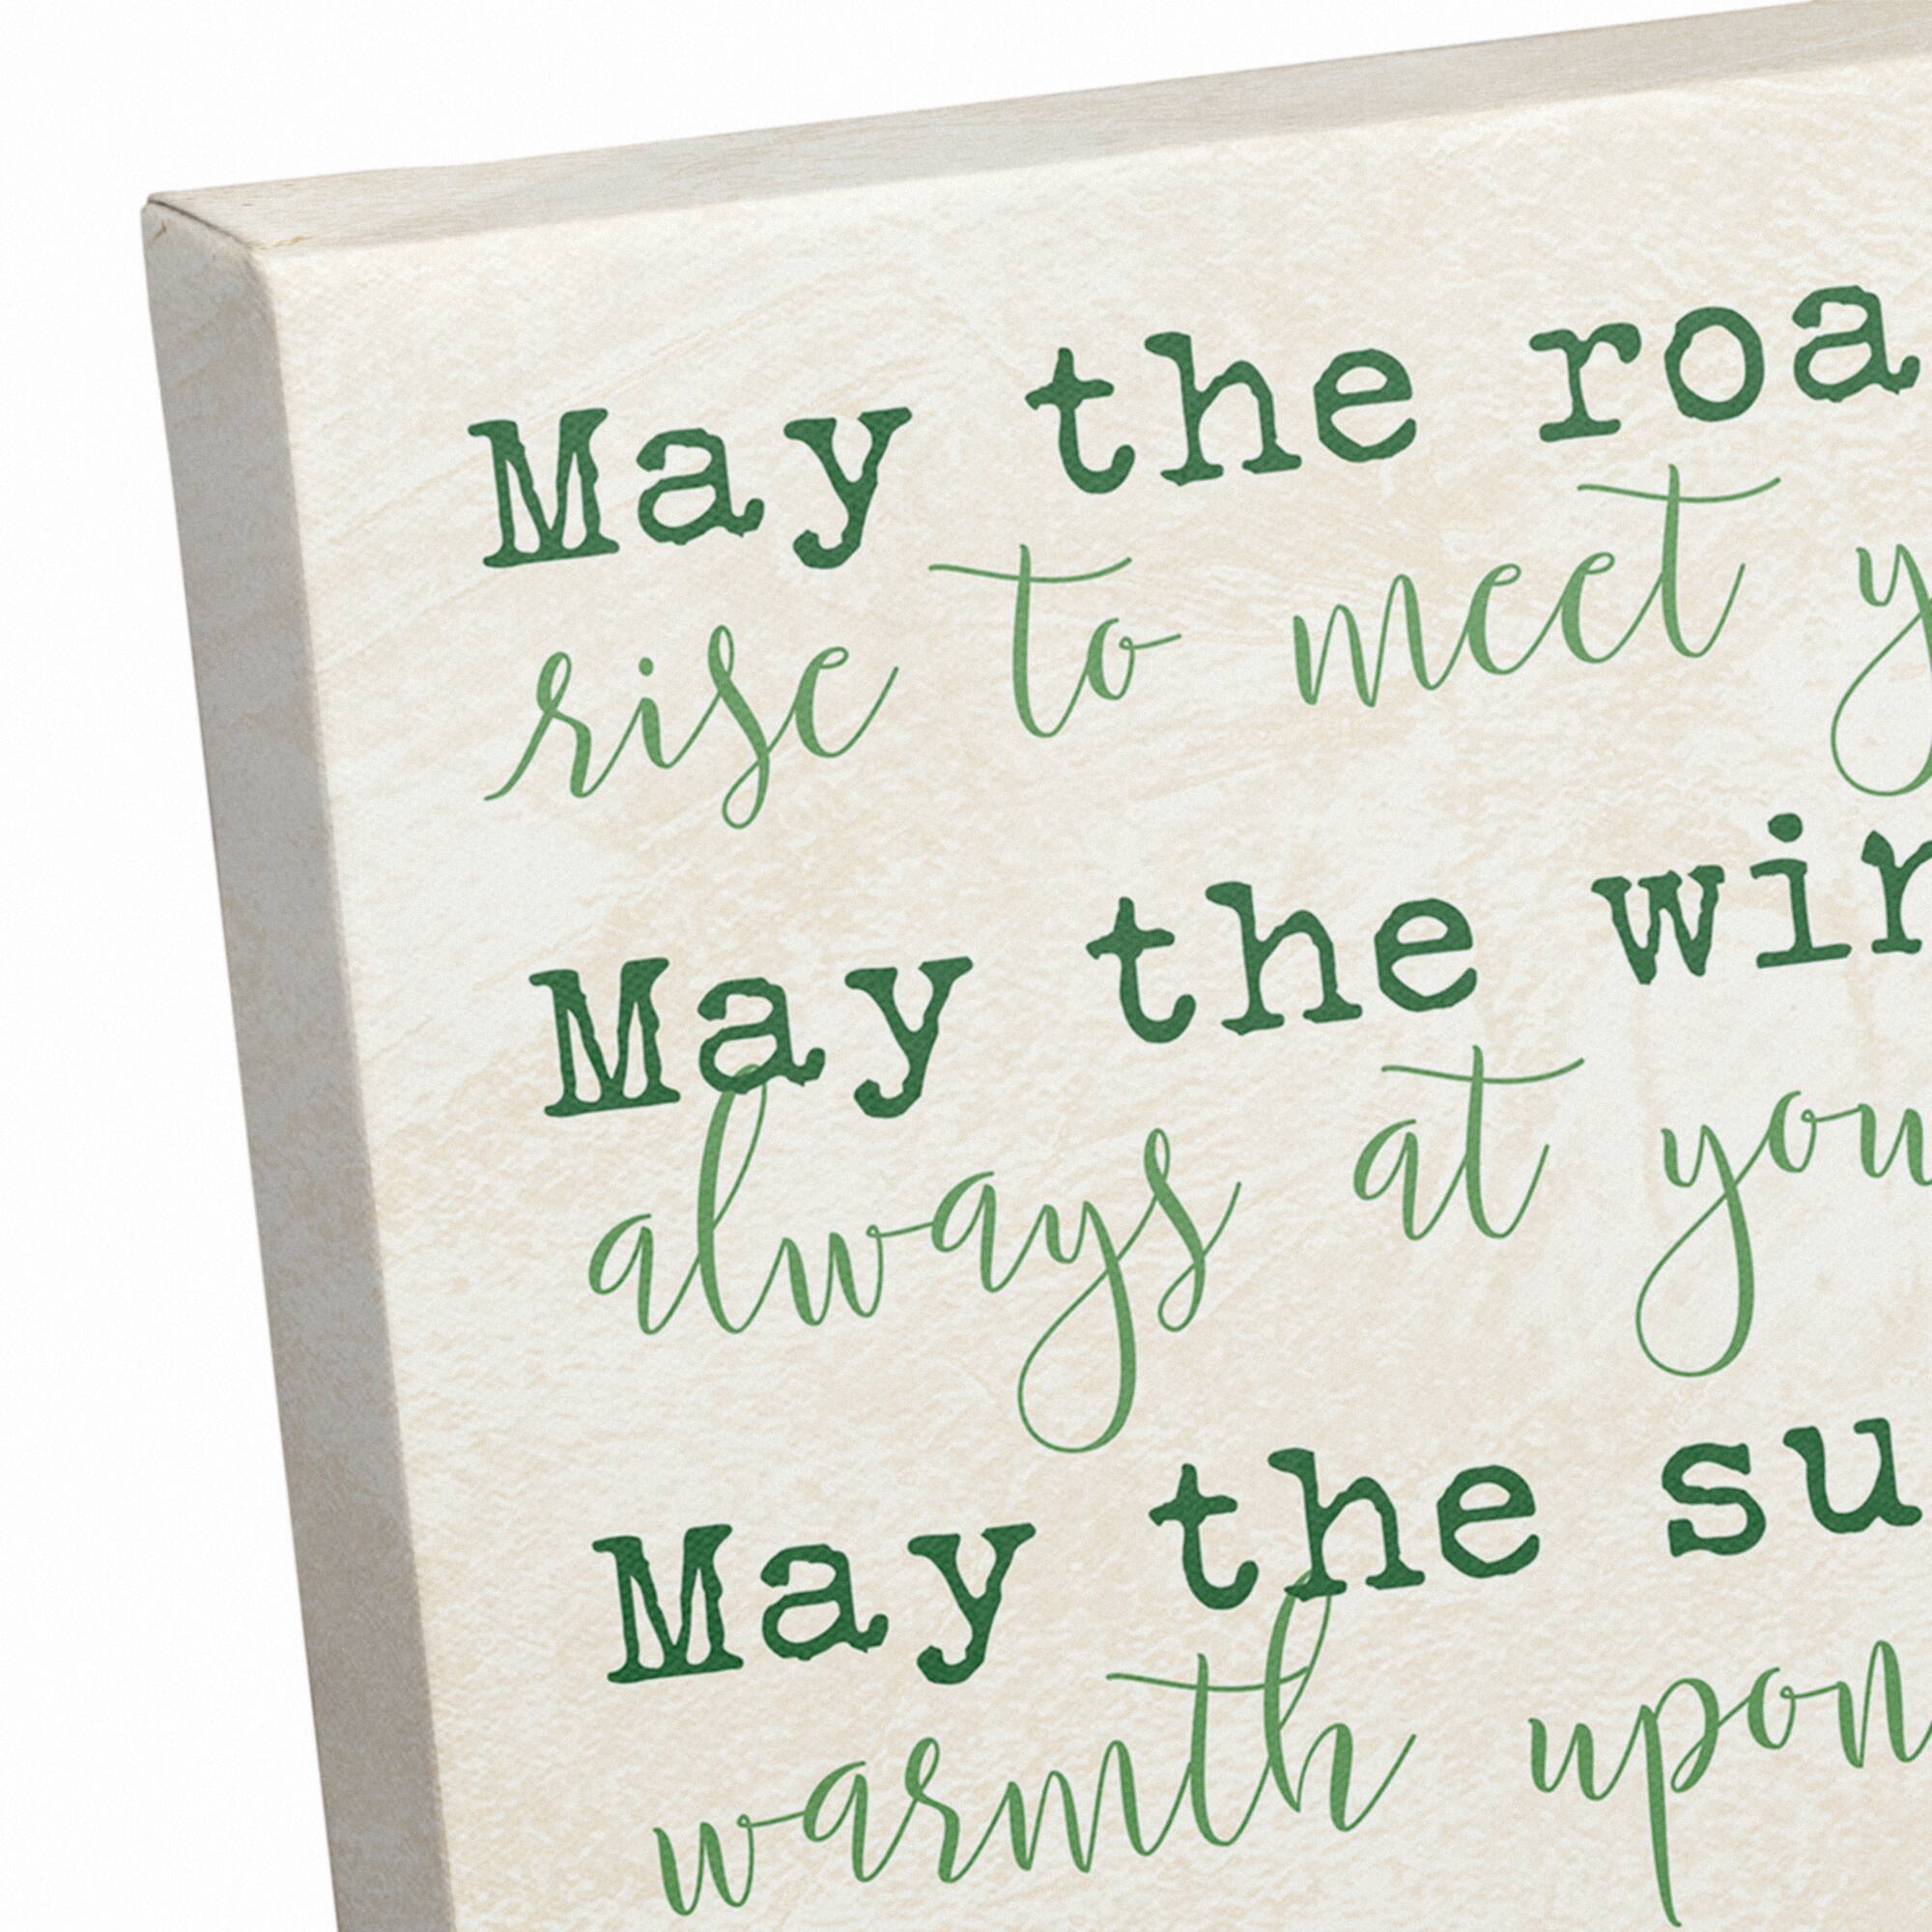 May the roa
rise to meet y
May the win
always at you
May the su
warmth upon